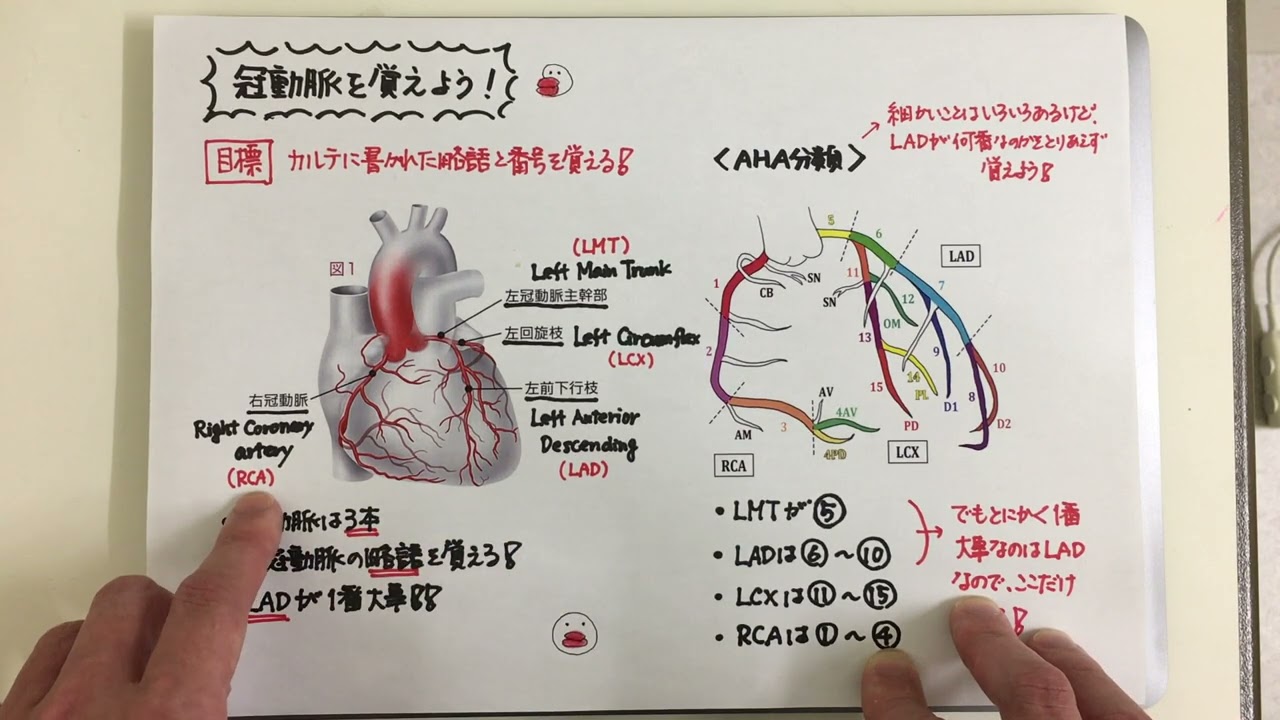 冠動脈を覚えよう!
目標 カルテに書かれた略語と番号を覚える!
図1
(LMT)
Left Main Trunk
左冠動脈主幹部
左回旋枝 Left Circumflex
(LCX)
左前下行枝
Left Anterior
Descending
(LAD)
右冠動脈
Right Coronary
artery
(RCA)
動脈は3本
冠動脈の略語を覚える!
LADが1番大事!!
<AHA分類>
細かいことはいろいろあるけど、
LADが何番なのかをとりあえず
覚えよう!
5
6
LAD
1
CB
SN
SN
11
12
OM
7
2
13
14
PL
9
10
15
8
D1
D2
AV
4AV
AM
3
4PD
PD
RCA
LCX
・LMTが⑤
・LADは⑥~⑩
・LCXは⑪~⑮
・RCAは①~④
でもとにかく1番
大事なのはLAD
なので、ここだけ